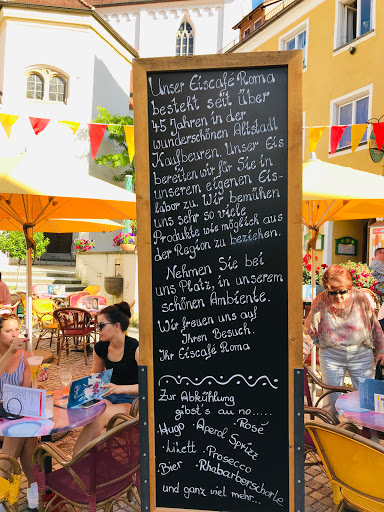 Unser Eiscafé Roma
besteht seit über
45 Jahren in der
wunderschönen Altstadt
Kaufbeuren. Unser Eis
bereiten wir für Sie in
unserem eigenen Eis-
labor zu. Wir bemühen
uns sehr so viele
Produkte wie möglich aus
der Region zu beziehen.
Nehmen Sie bei
uns Platz, in unserem
schönen Ambiente.
Wir freuen uns auf
Ihren Besuch.
Ihr Eiscafé Roma
Zur Abkühlung
gibt's au no.....
Hugo · Aperol Sprizz · Rosé
· Likett · Prosecco
Bier · Rhabarberschorle
und ganz viel mehr...